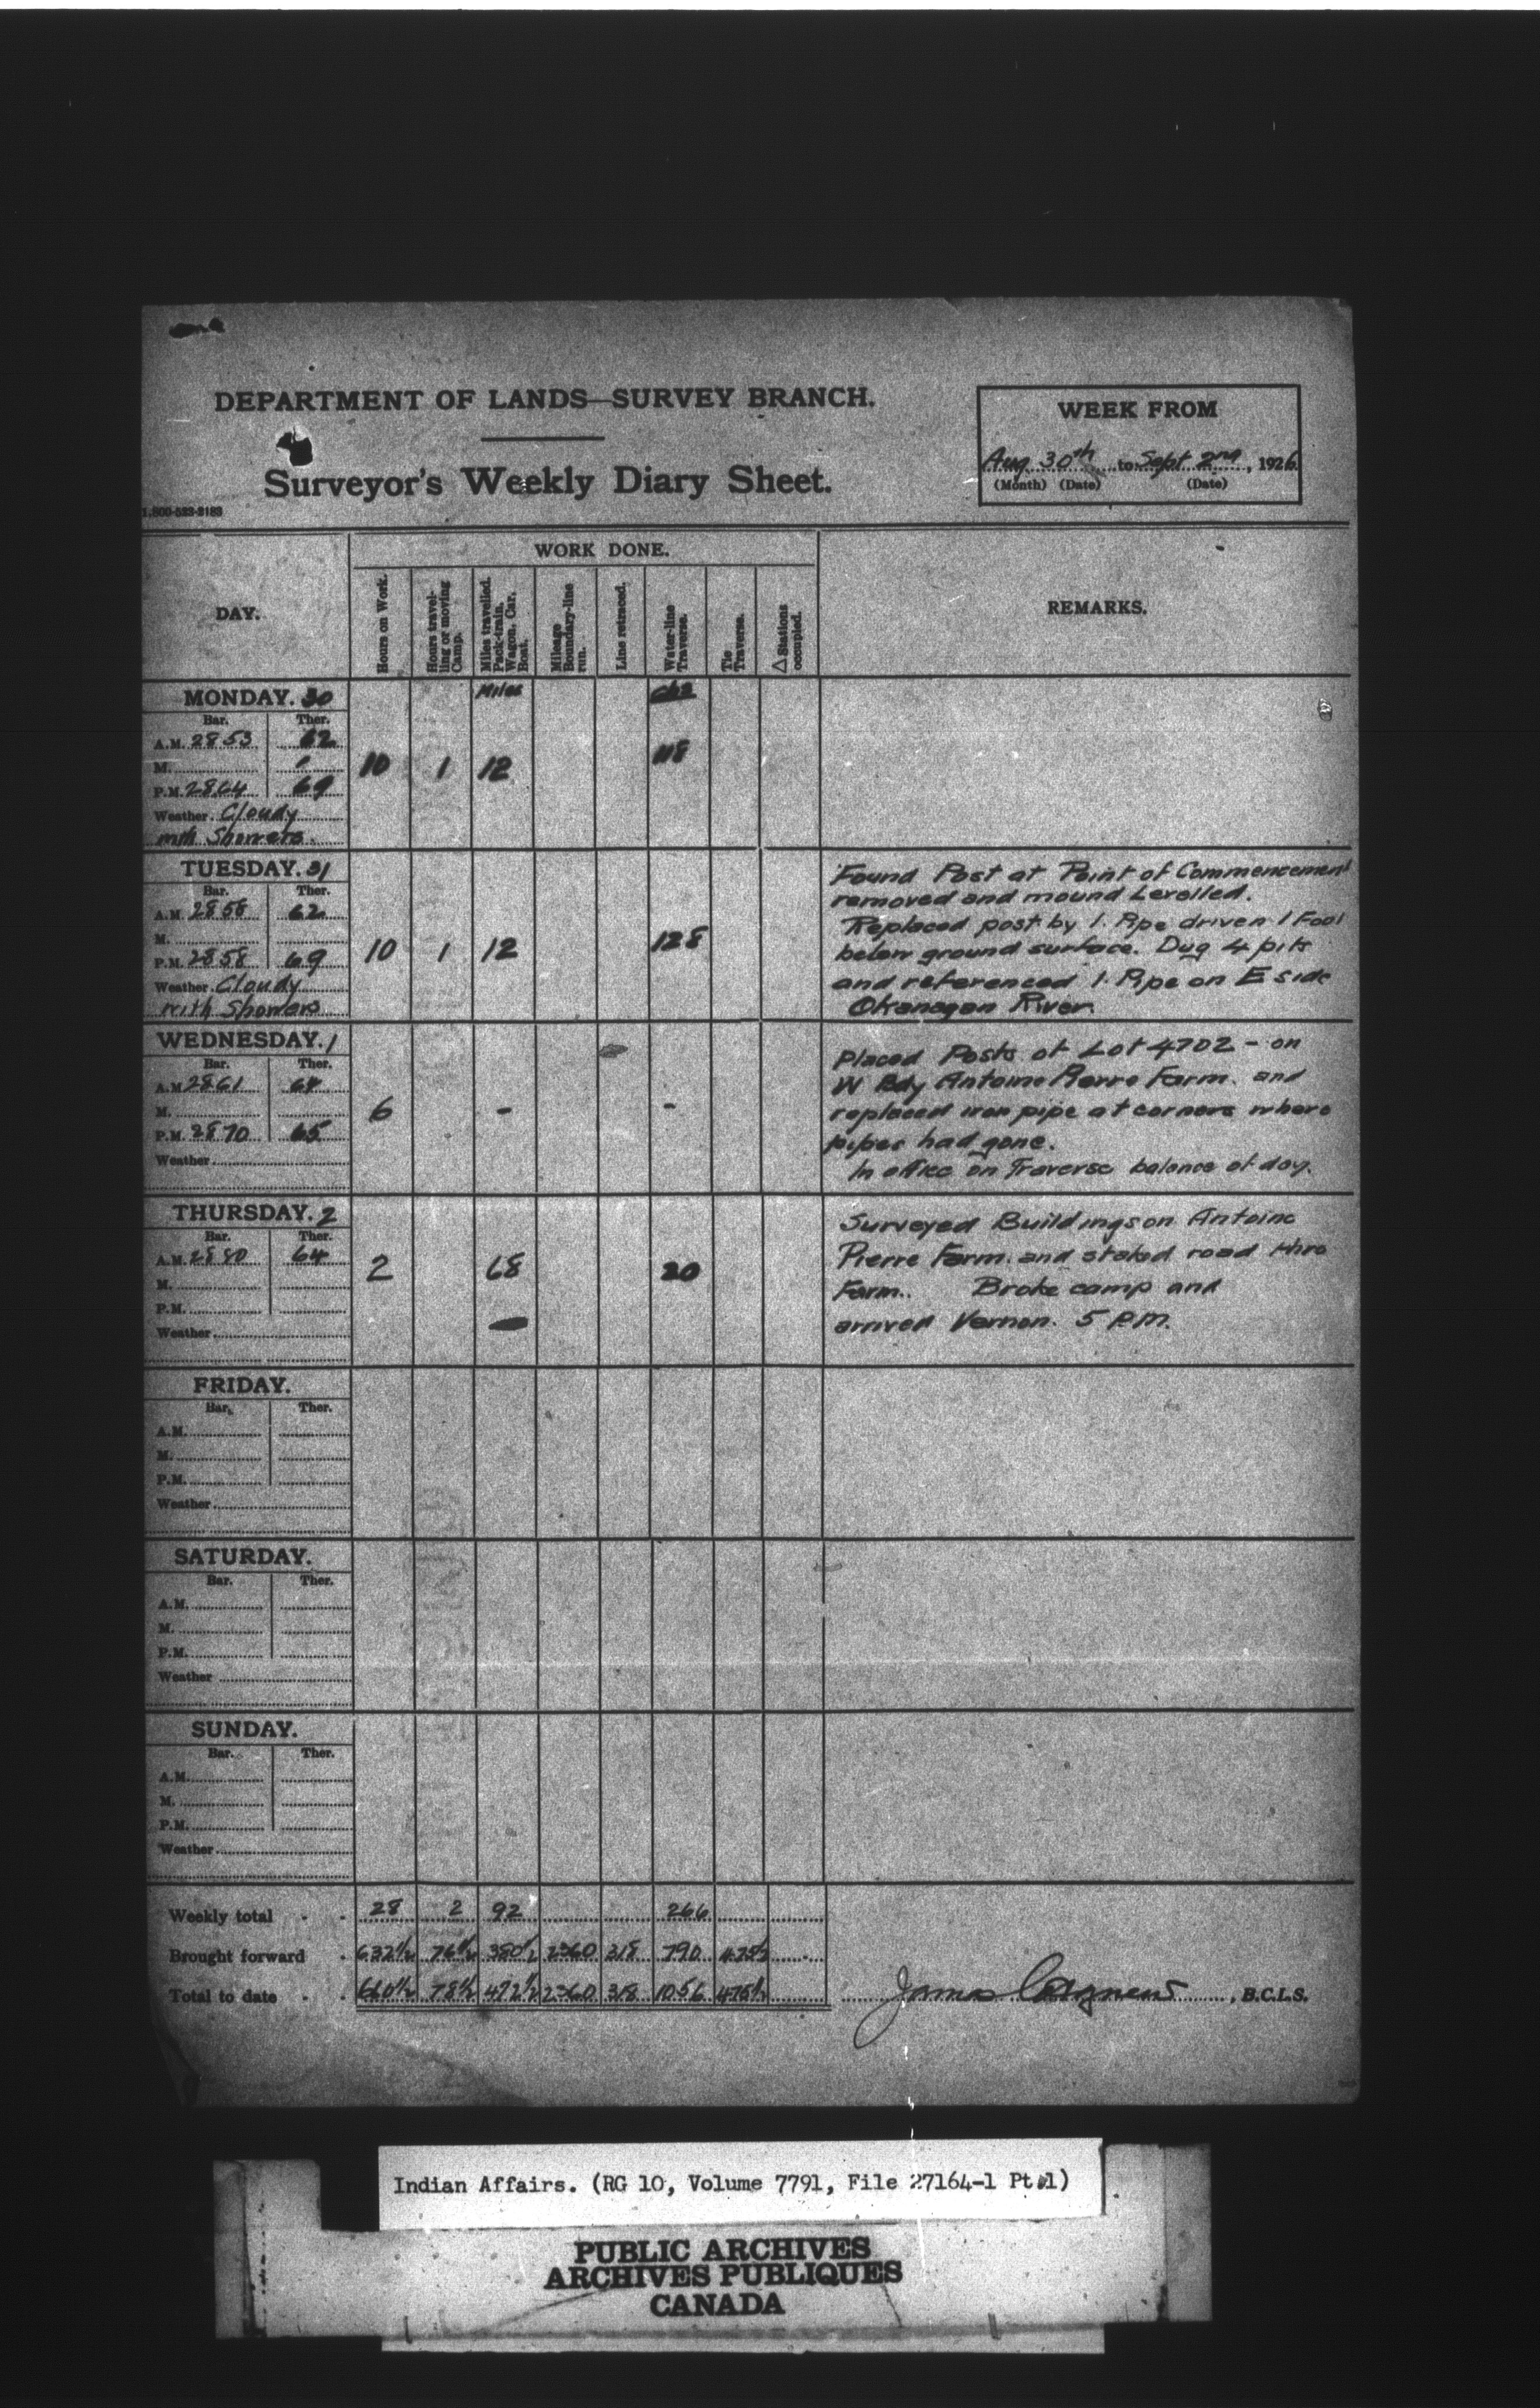 DEPARTMENT OF LANDS—SURVEY BRANCH.
Surveyor's Weekly Diary Sheet.
WEEK FROM
Aug 30th to Sept 2nd, 1926
(Month) (Date) (Date)
DAY.
WORK DONE.
REMARKS.
Hours on Work.
Hours travelling or moving Camp.
Miles travelled. Pack-train. Wagon. Car. Boat.
Mileage Boundary-line run.
Line retraced.
Water-line Traverse.
Tie Traverse.
△ Stations occupied.
MONDAY. 30
Miles
Chs
Bar. Ther.
A.M. 2853 62
M.
P.M. 2864 69
10 1 12 118
Weather Cloudy
with Showers.
TUESDAY. 31
Bar. Ther.
A.M. 2858 62
M.
P.M. 2858 69
10 1 12 128
Weather Cloudy
with Showers
Found Post at Point of Commencement
removed and mound Levelled.
Replaced post by 1. Pipe driven 1 Foot
below ground surface. Dug 4 pits
and referenced 1. Pipe on E side
Okanagan River.
WEDNESDAY. 1
Bar. Ther.
A.M. 2861 64
M.
P.M. 2870 65
6 - -
Weather
Placed Posts at Lot 4702 - on
W Bdy Antoine Pierre Farm. and
replaced iron pipe at corners where
pipes had gone.
In office on Traverse balance of day.
THURSDAY. 2
Bar. Ther.
A.M. 2880 64
M.
P.M.
2 68 20
Weather
Surveyed Buildings on Antoine
Pierre Farm. and staked road thro
Farm. Broke camp and
arrived Vernon. 5 P.M.
FRIDAY.
Bar. Ther.
A.M.
M.
P.M.
Weather
SATURDAY.
Bar. Ther.
A.M.
M.
P.M.
Weather
SUNDAY.
Bar. Ther.
A.M.
M.
P.M.
Weather
Weekly total - - 28 2 92 266
Brought forward - 632½ 76½ 380½ 2360 318 790 475½
Total to date - - 660½ 78½ 472½ 2360 318 1056 475½
James , B.C.L.S.
Indian Affairs. (RG 10, Volume 7791, File 27164-1 Pt.1)
PUBLIC ARCHIVES
ARCHIVES PUBLIQUES
CANADA